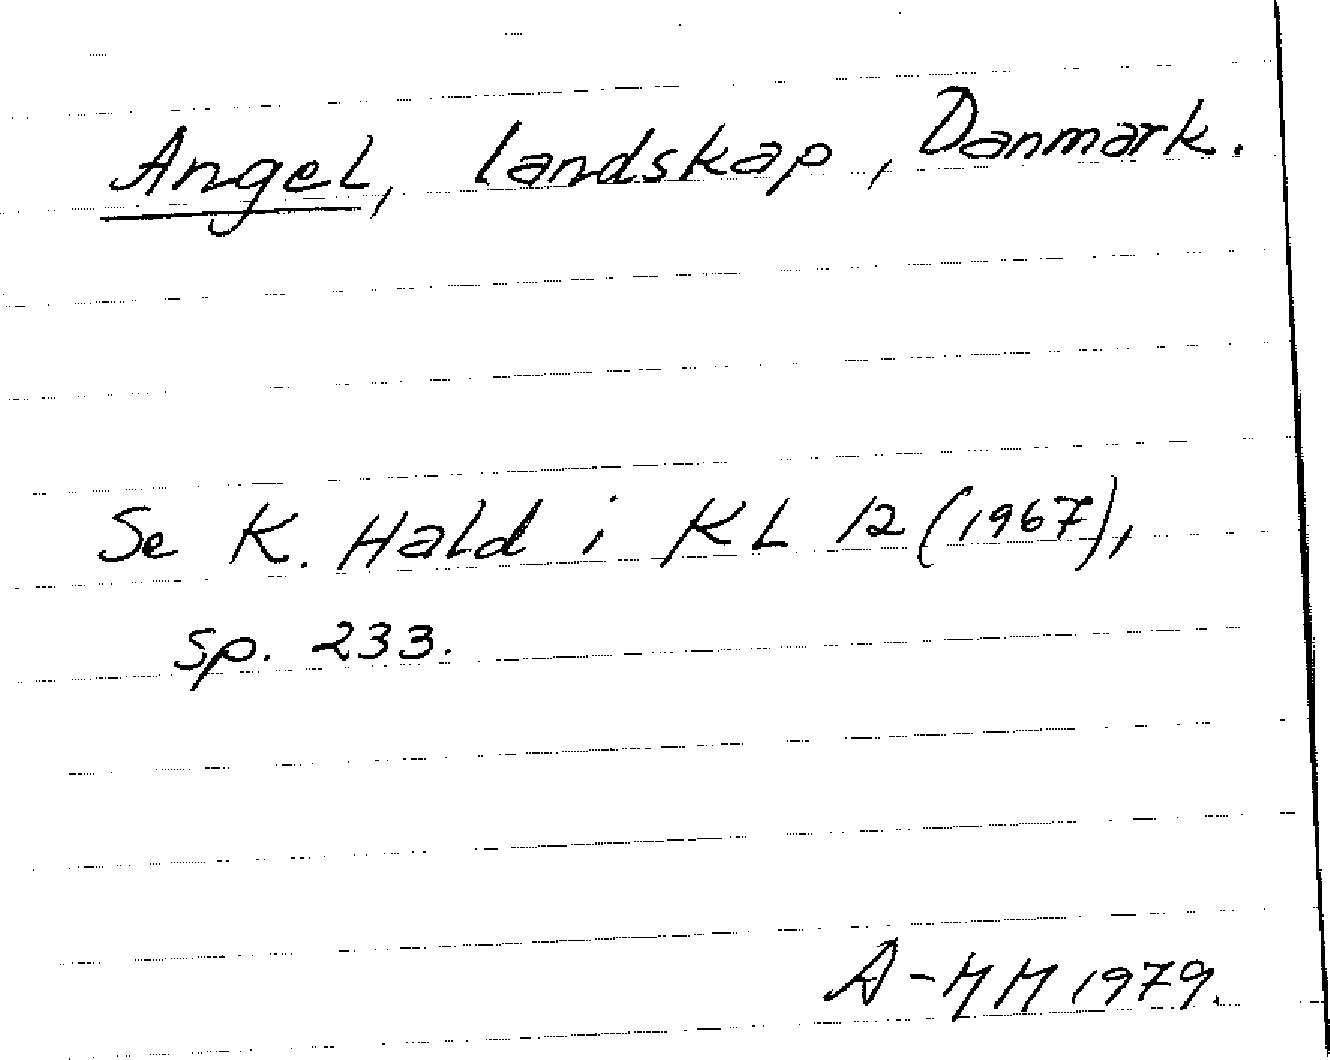 Angel, landskap, Danmark.
Se K. Hald i KL 12 (1967),
sp. 233.
A-MM 1979.